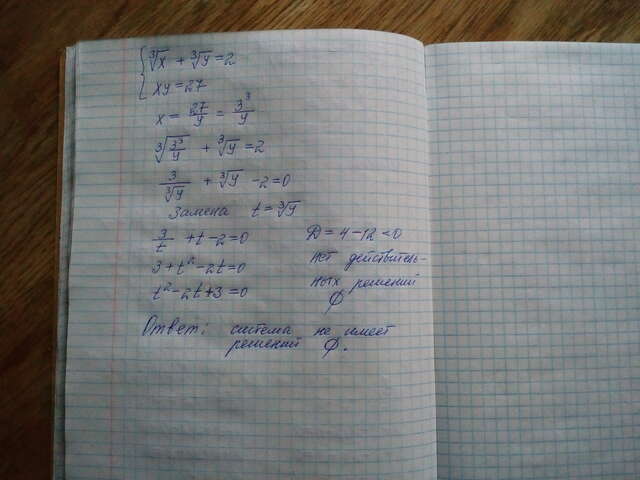 { ∛x + ∛y = 2
xy = 27
x = 27/y = 3³/y
∛(3³/y) + ∛y = 2
3/∛y + ∛y - 2 = 0
Замена t = ∛y
3/t + t - 2 = 0
3 + t² - 2t = 0
t² - 2t + 3 = 0
D = 4 - 12 < 0
нет действитель-
ных решений
∅
Ответ: система не имеет
решений ∅.